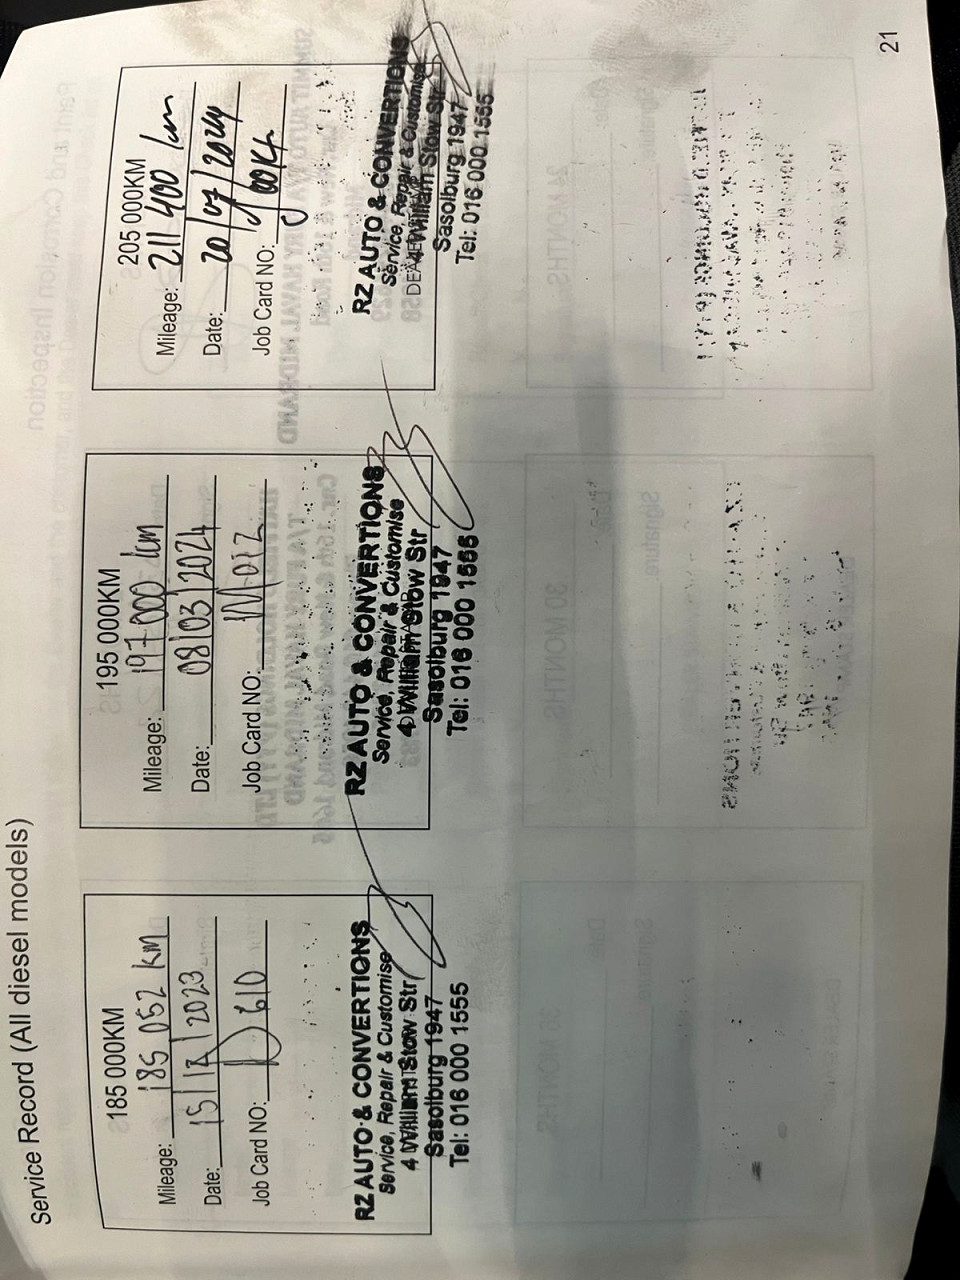 Service Record (All diesel models)
185 000KM
Mileage: 185 052 km
Date: 15/12/2023
Job Card NO: D610
RZ AUTO & CONVERTIONS
Service, Repair & Customise
4 William Stow Str
Sasolburg 1947
Tel: 016 000 1555
195 000KM
Mileage: 197 000 km
Date: 08/03/2024
Job Card NO:
RZ AUTO & CONVERTIONS
Service, Repair & Customise
4 William Stow Str
Sasolburg 1947
Tel: 016 000 1555
205 000KM
Mileage: 211 400 km
Date: 20/07/2024
Job Card NO:
RZ AUTO & CONVERTIONS
Service, Repair & Customise
4 William Stow Str
Sasolburg 1947
Tel: 016 000 1555
21